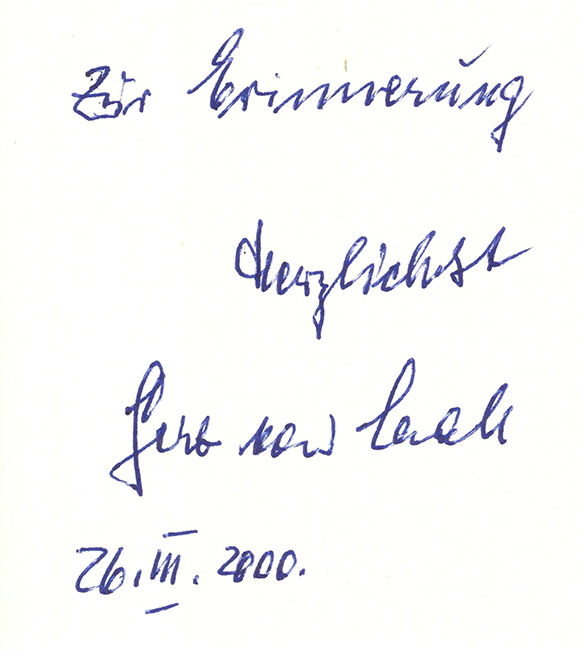 Zur Erinnerung
Herzlichst
von Laak
26.III.2000.